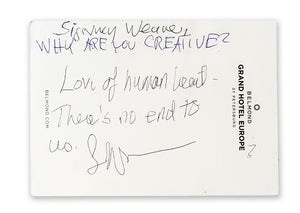 Sigourney Weaver
WHY ARE YOU CREATIVE?
Love of human heart -
There's no end to
us.
BELMOND.COM
BELMOND
GRAND HOTEL EUROPE
ST PETERSBURG